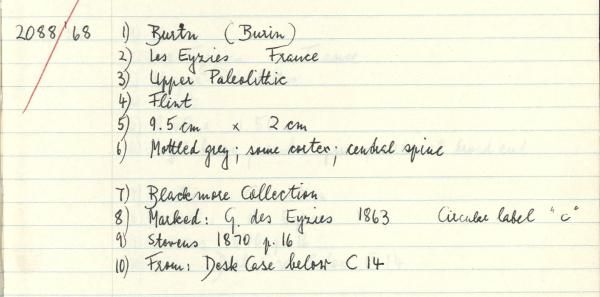 2088/'68 1) Burin (Burin)
2) Les Eyzies France
3) Upper Paleolithic
4) Flint
5) 9.5 cm x 2 cm
6) Mottled grey; some cortex; central spine
7) Blackmore Collection
8) Marked: G. des Eyzies 1863 Circular label "c"
9) Stevens 1870 p. 16
10) From: Desk Case below C 14